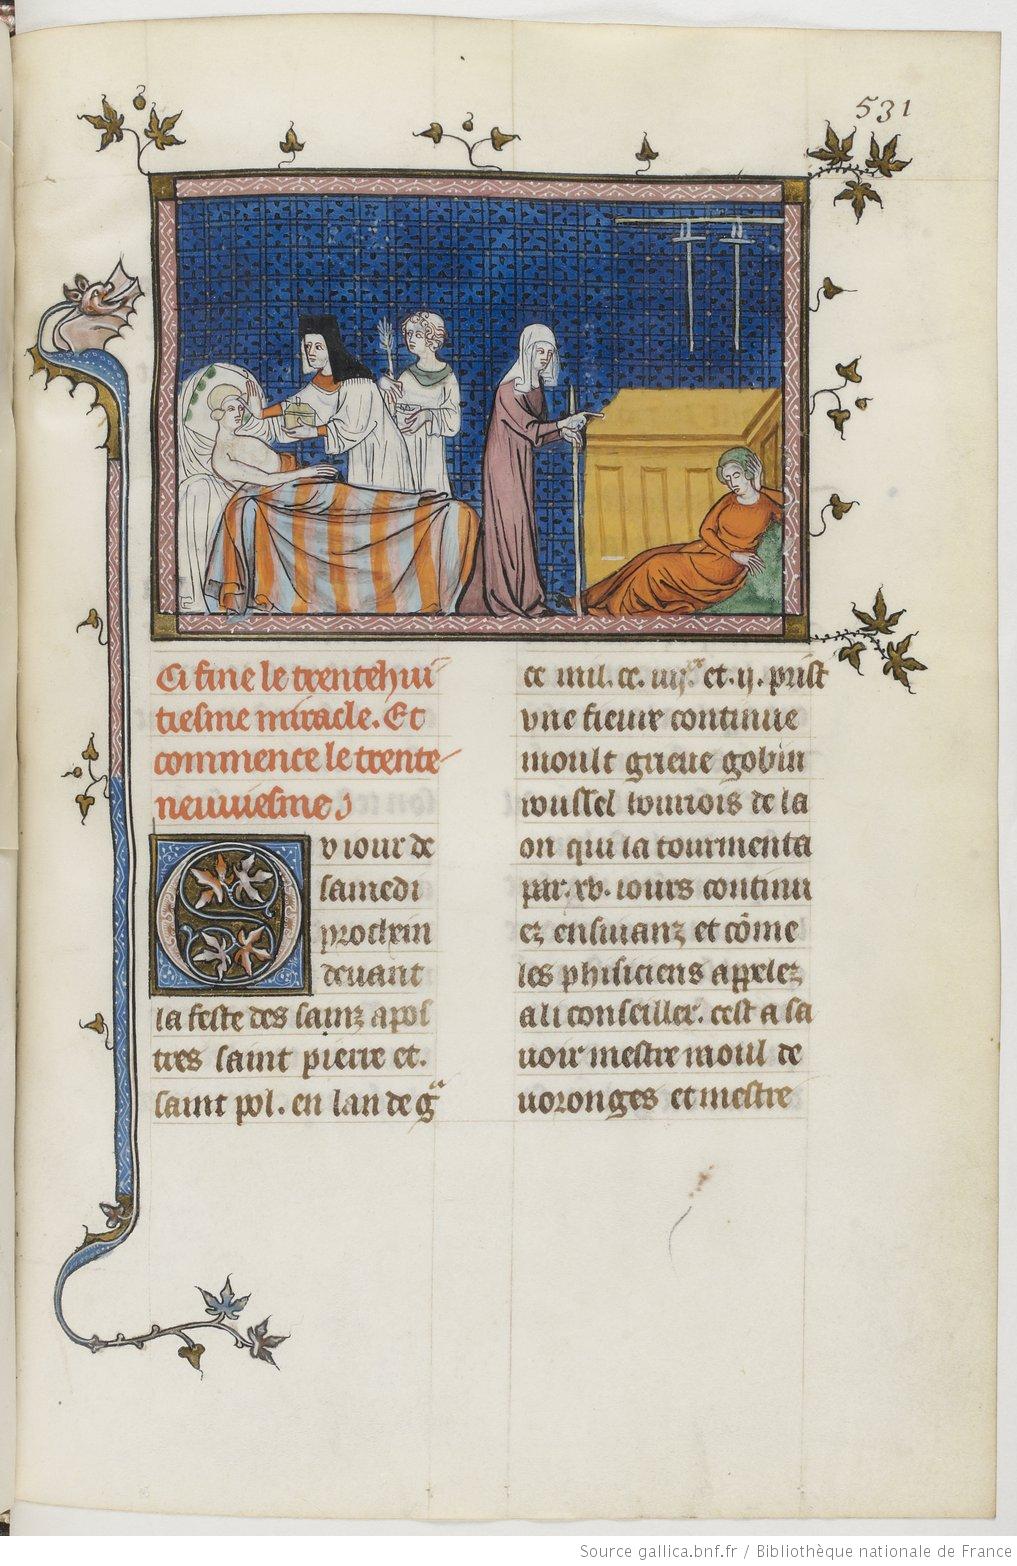 531
Ci fine le trentehui
tiesme miracle. Et
commence le trente
neuuiesme
Ou iour de
samedi
prochein
deuant
la feste des sainz apos
tres saint pierre et.
saint pol. en lan de gͣ
ce mil. cc. iiijxx et. ij. prist
vne fieure continue
moult grieue gobin
roussel tounois de la
on qui la tourmenta
par. xv. iours continu
ez ensiuanz et cōme
les phisiciens appelez
a li conseillier. cest a sa
uoir mestre de
uoronges et mestre
Source gallica.bnf.fr / Bibliothèque nationale de France